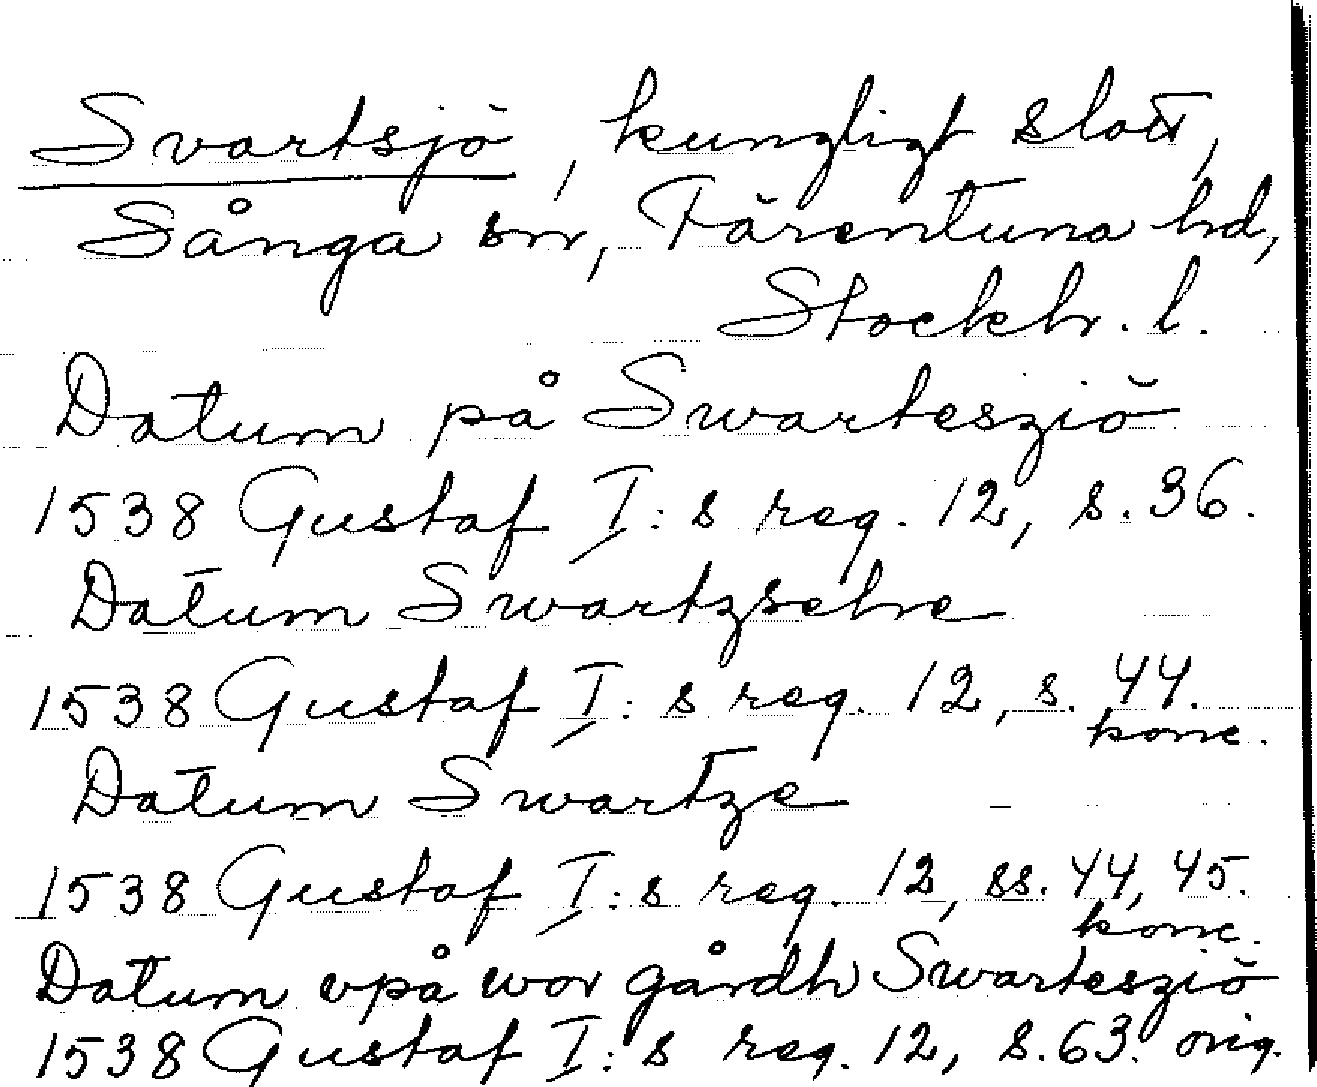 Svartsjö, kungligt slott,
Sånga sn, Färentuna hd,
Stockh. l.
Datum på Swartesziö
1538 Gustaf I:s reg. 12, s. 36.
Datum Swartzsche
1538 Gustaf I:s reg. 12, s. 44.
konc.
Datum Swartze
1538 Gustaf I:s reg. 12, ss. 44, 45.
konc.
Datum vpå wor gårdh Swartesziö
1538 Gustaf I:s reg. 12, s. 63. orig.